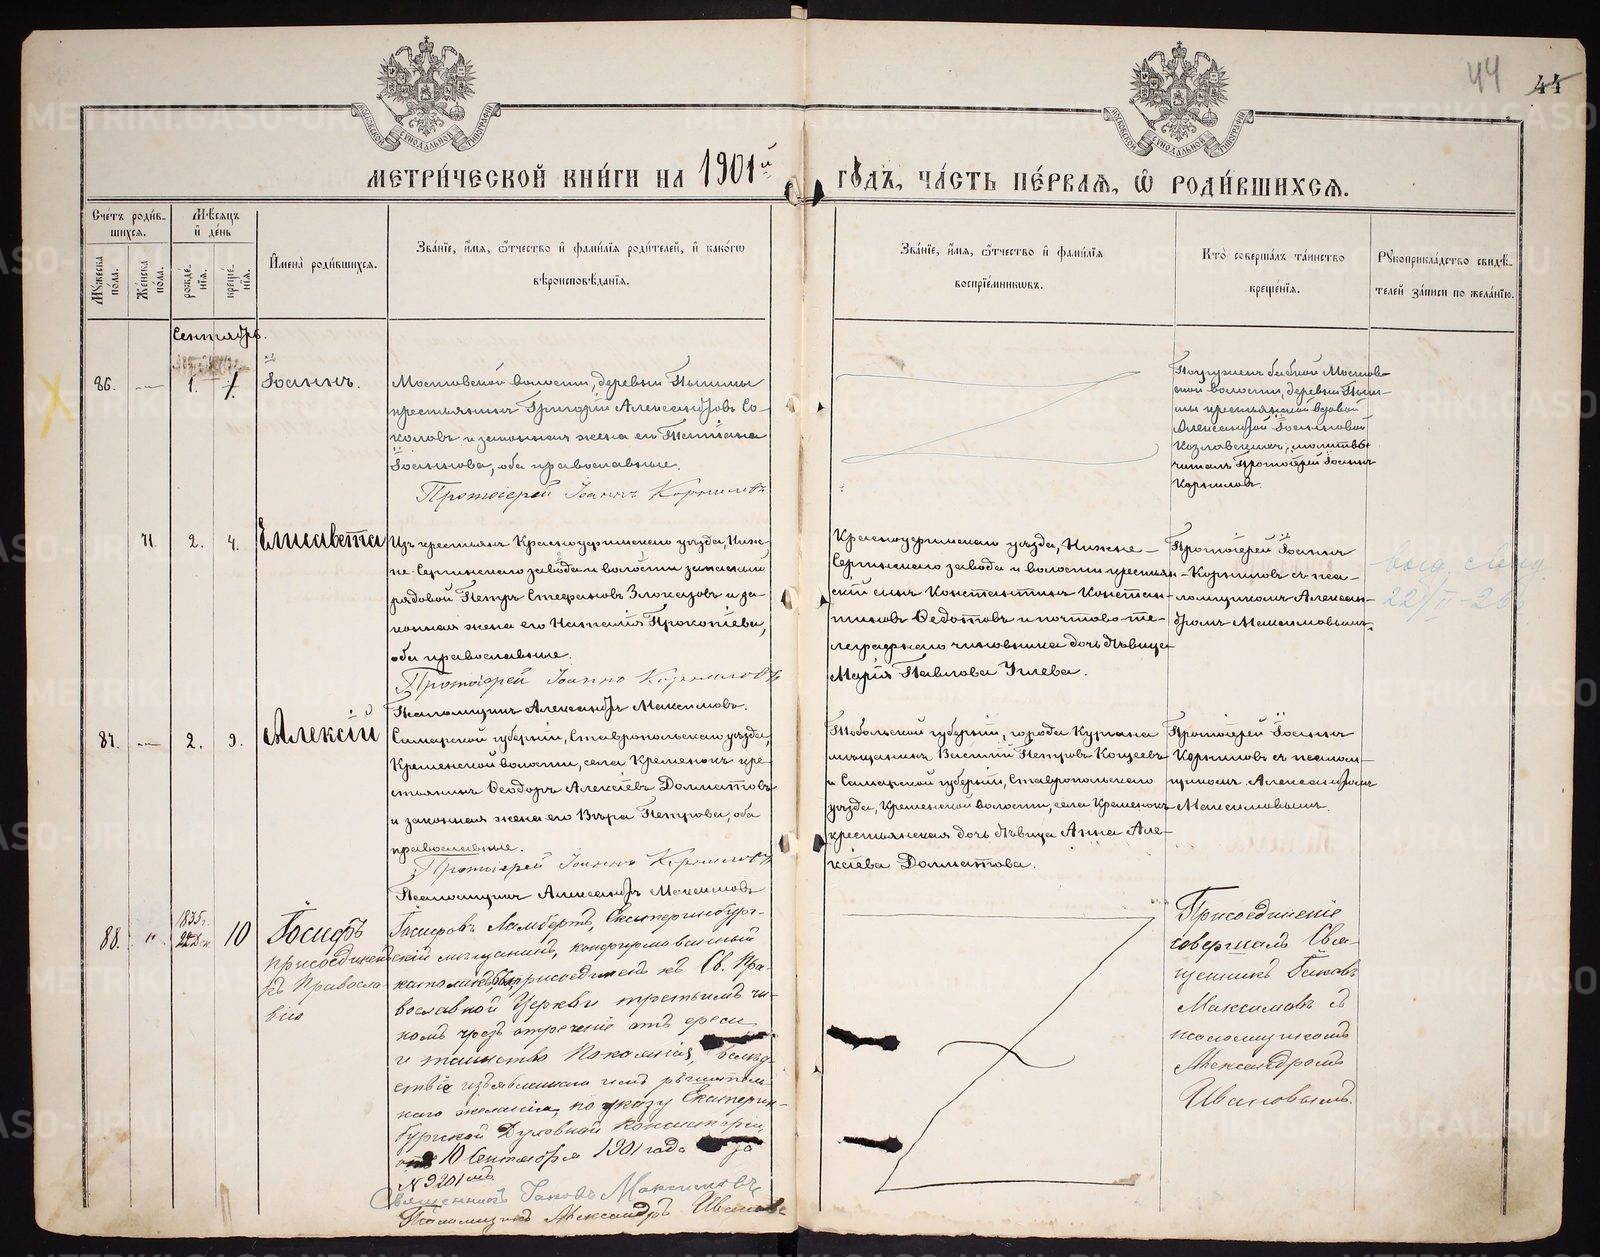 44 44
МОСКОВСКОЙ СѴНОДАЛЬНОЙ ТИПОГРАФІИ
МОСКОВСКОЙ СѴНОДАЛЬНОЙ ТИПОГРАФІИ
МЕТРИ́ЧЕСКОЙ КНИ́ГИ НА 1901й
ГО́ДЪ, ЧА́СТЬ ПЕ́РВАЯ, Ѡ РОДИ́ВШИХСЯ.
Сче́тъ роди́в-
шихся.
Му́жеска
по́ла.
Же́нска
по́ла.
Мѣ́сяцъ
и де́нь
рожде́-
нія.
креще́-
нія.
Имена̀ роди́вшихся.
Зва́ніе, и́мя, ѻ́тчество и фами́лія роди́телей, и како́гѡ
вѣроисповѣ́данія.
Зва́ніе, и́мя, ѻ́тчество и фами́лія
воспріе́мникѡвъ.
Кто̀ соверша́лъ та́инство
креще́нія.
Рукоприкла́дство свидѣ́-
телей за́писи по жела́нію.
Сентябрь.
86. — 1. 1.
Іоаннъ.
Мостовской волости, деревни Пышмы
крестьянинъ Григорій Александровъ Со-
коловъ и законная жена его Татіана
Іоаннова, оба православные.
Протоіерей Іоаннъ Корниловъ
Погружен бабкой Мостов-
ской волости, деревни Пыш-
мы крестьянской вдовой
Александрой Іоанновой
Козловских; молитвы
читалъ Протоіерей Іоаннъ
Корниловъ.
71. 2. 4.
Елисавета
Изъ крестьянъ Красноуфимскаго уѣзда, Ниж-
не-Сергинскаго завода и волости запасный
рядовой Петръ Стефановъ Злоказовъ и за-
конная жена его Наталія Прокопіева,
оба православные.
Протоіерей Іоаннъ Корниловъ
Псаломщикъ Александръ Максимовъ.
Красноуфимскаго уѣзда, Нижне-
Сергинскаго завода и волости крестьян-
скій сынъ Константинъ Констан-
тиновъ Ѳедотовъ и почтово-те-
леграфнаго чиновника дочь дѣвица
Марія Павлова Углева.
Протоіерей Іоаннъ
Корниловъ съ пса-
ломщикомъ Алексан-
дромъ Максимовымъ.
22/II-26
87. — 2. 9.
Алексій
Самарской губерніи, Ставропольскаго уѣзда,
Кременской волости, села Кременокъ кре-
стьянинъ Ѳеодоръ Алексіевъ Долматовъ
и законная жена его Вѣра Петрова, оба
православные.
Протоіерей Іоаннъ Корниловъ
Псаломщикъ Александръ Максимовъ
Тобольской губерніи, города Кургана
мѣщанинъ Василій Петровъ Кощеевъ
и Самарской губерніи, Ставропольскаго
уѣзда, Кременской волости, села Кременокъ
крестьянская дочь дѣвица Анна Але-
ксіева Долматова.
Протоіерей Іоаннъ
Корниловъ съ псалом-
щикомъ Александромъ
Максимовымъ.
88. " 1835 г. 10
Іосифъ
присоединен
къ Правосла-
вію
Іосифовъ Ламбертъ, Екатеринбург-
скій мѣщанинъ, конфирмованный
католикъ, присоединенъ къ Св. Пра-
вославной Церкви третьимъ чи-
номъ чрезъ отреченіе отъ ереси
и таинство Покаянія, вслѣд-
ствіе изъявленнаго имъ рѣшитель-
наго желанія, по указу Екатерин-
бургской Духовной Консисторіи,
отъ 10 Сентября 1901 года за
№ 9201
Священникъ Іаковъ Максимовъ
Псаломщикъ Александръ Ивановъ
Присоединеніе
совершалъ Свя-
щенникъ Іаковъ
Максимовъ съ
псаломщикомъ
Александромъ
Ивановымъ.
METRIKI.GASO-URAL.RU